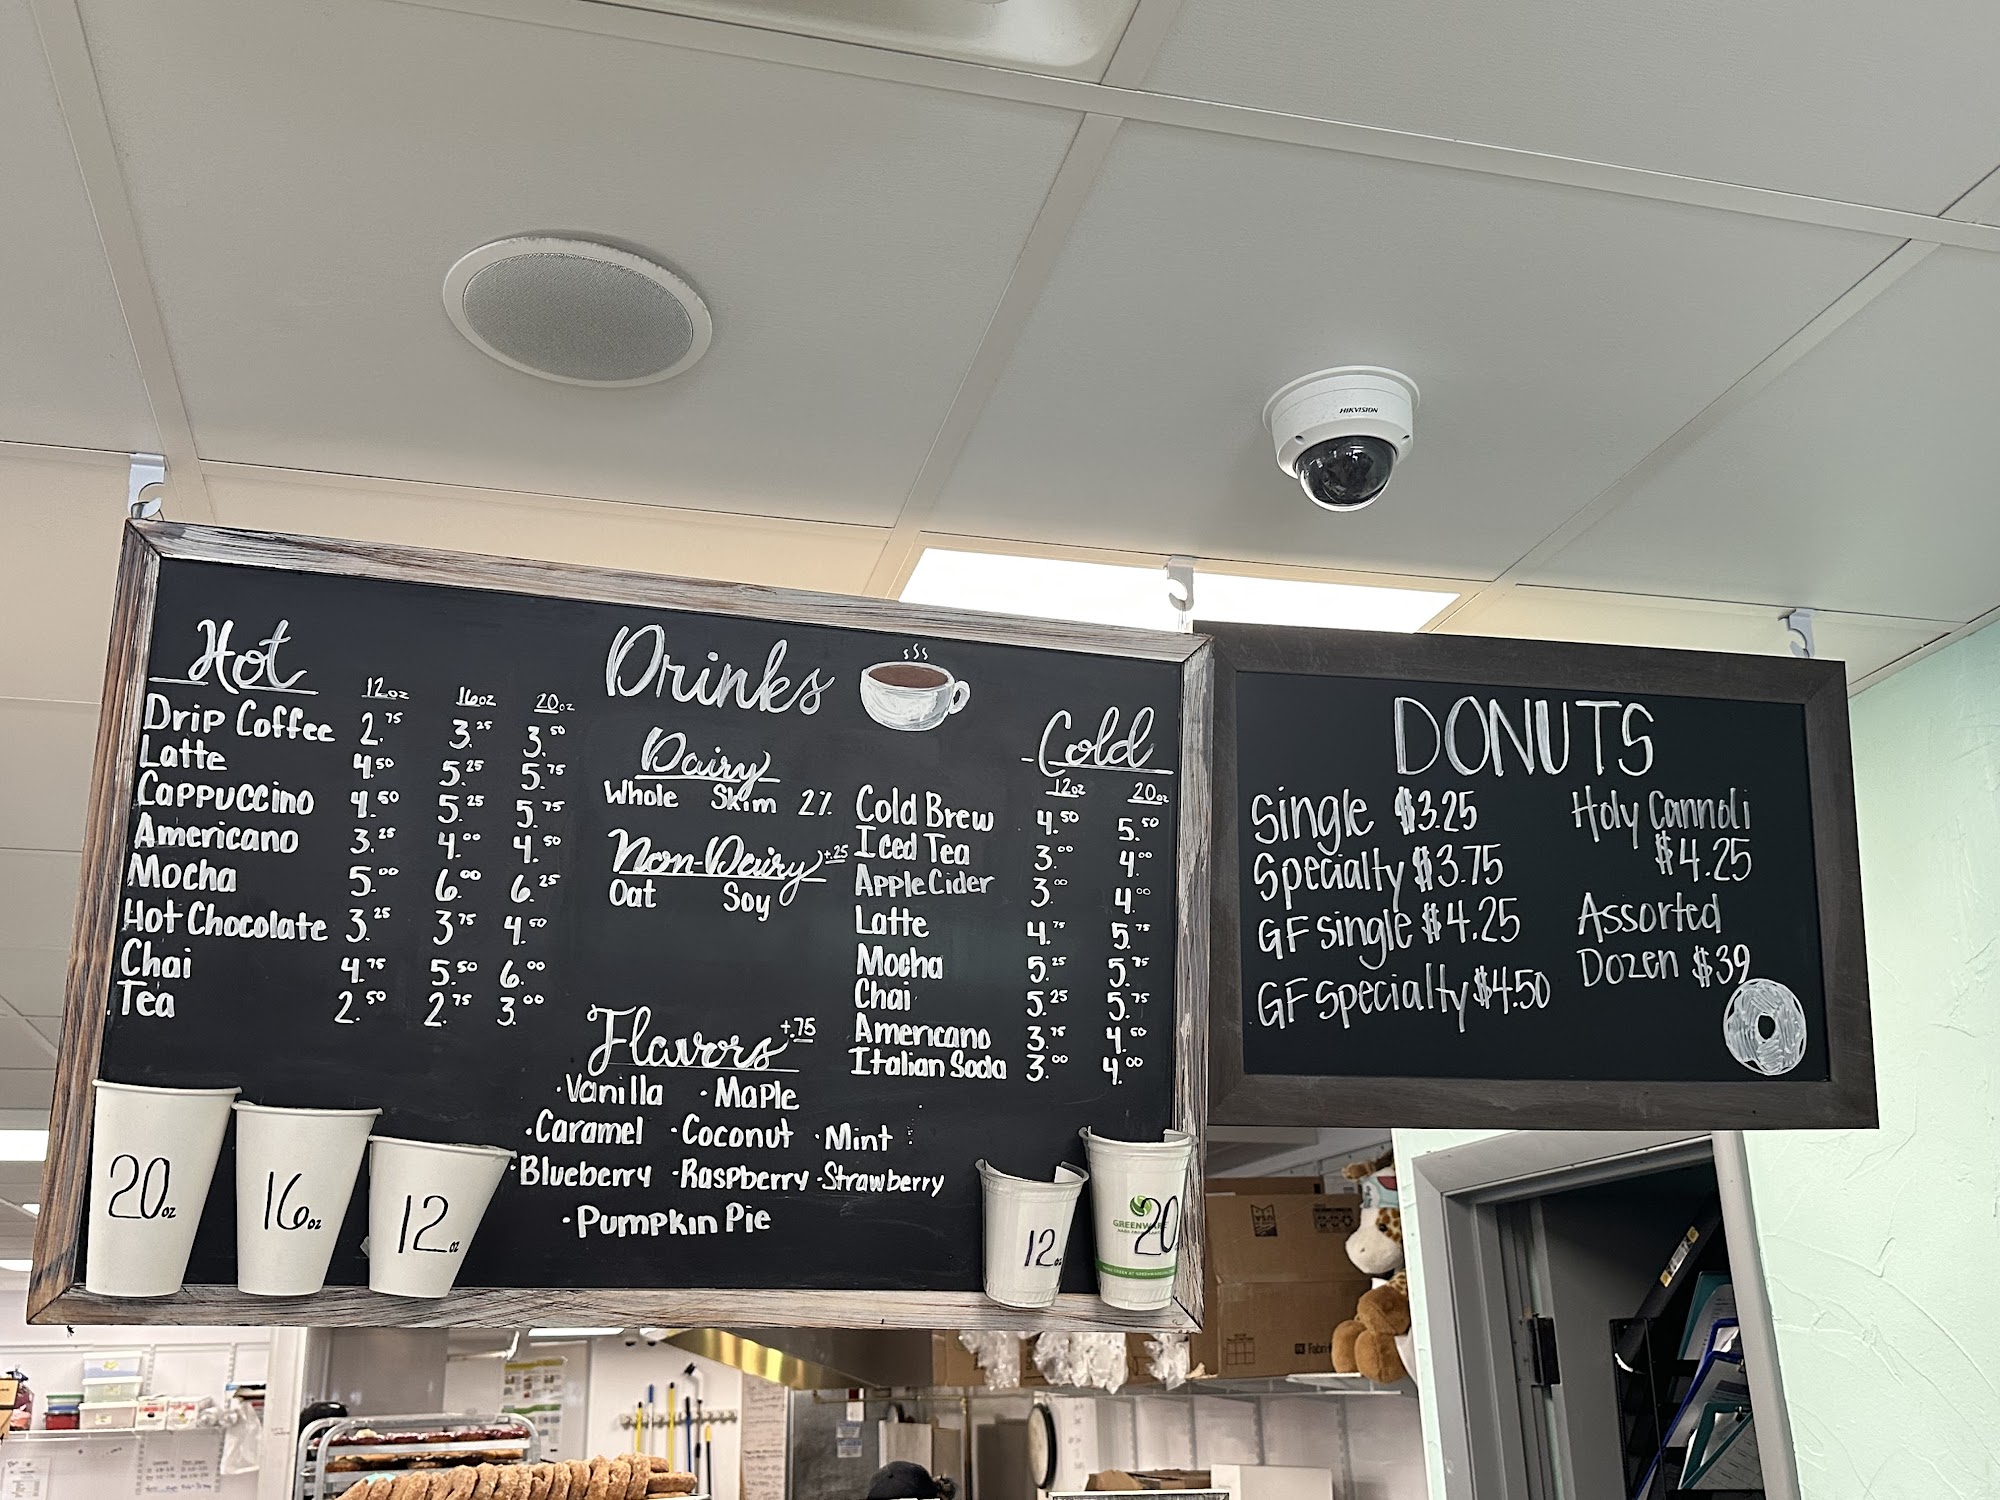 HIKVISION
Hot 12oz 16oz 20oz
Drip Coffee 2.75 3.25 3.50
Latte 4.50 5.25 5.75
Cappuccino 4.50 5.25 5.75
Americano 3.25 4.00 4.50
Mocha 5.00 6.00 6.25
Hot Chocolate 3.25 3.75 4.50
Chai 4.75 5.50 6.00
Tea 2.50 2.75 3.00
20oz
16oz
12oz
Drinks
Dairy
Whole Skim 2%
Non-Dairy +.25
Oat Soy
Flavors +.75
·Vanilla ·Maple
·Caramel ·Coconut ·Mint
·Blueberry ·Raspberry ·Strawberry
·Pumpkin Pie
Cold
12oz 20oz
Cold Brew 4.50 5.50
Iced Tea 3.00 4.00
Apple Cider 3.00 4.00
Latte 4.75 5.75
Mocha 5.25 5.75
Chai 5.25 5.75
Americano 3.75 4.50
Italian Soda 3.00 4.00
12oz
20
DONUTS
Single $3.25
Specialty $3.75
GF single $4.25
GF specialty $4.50
Holy Cannoli
$4.25
Assorted
Dozen $39